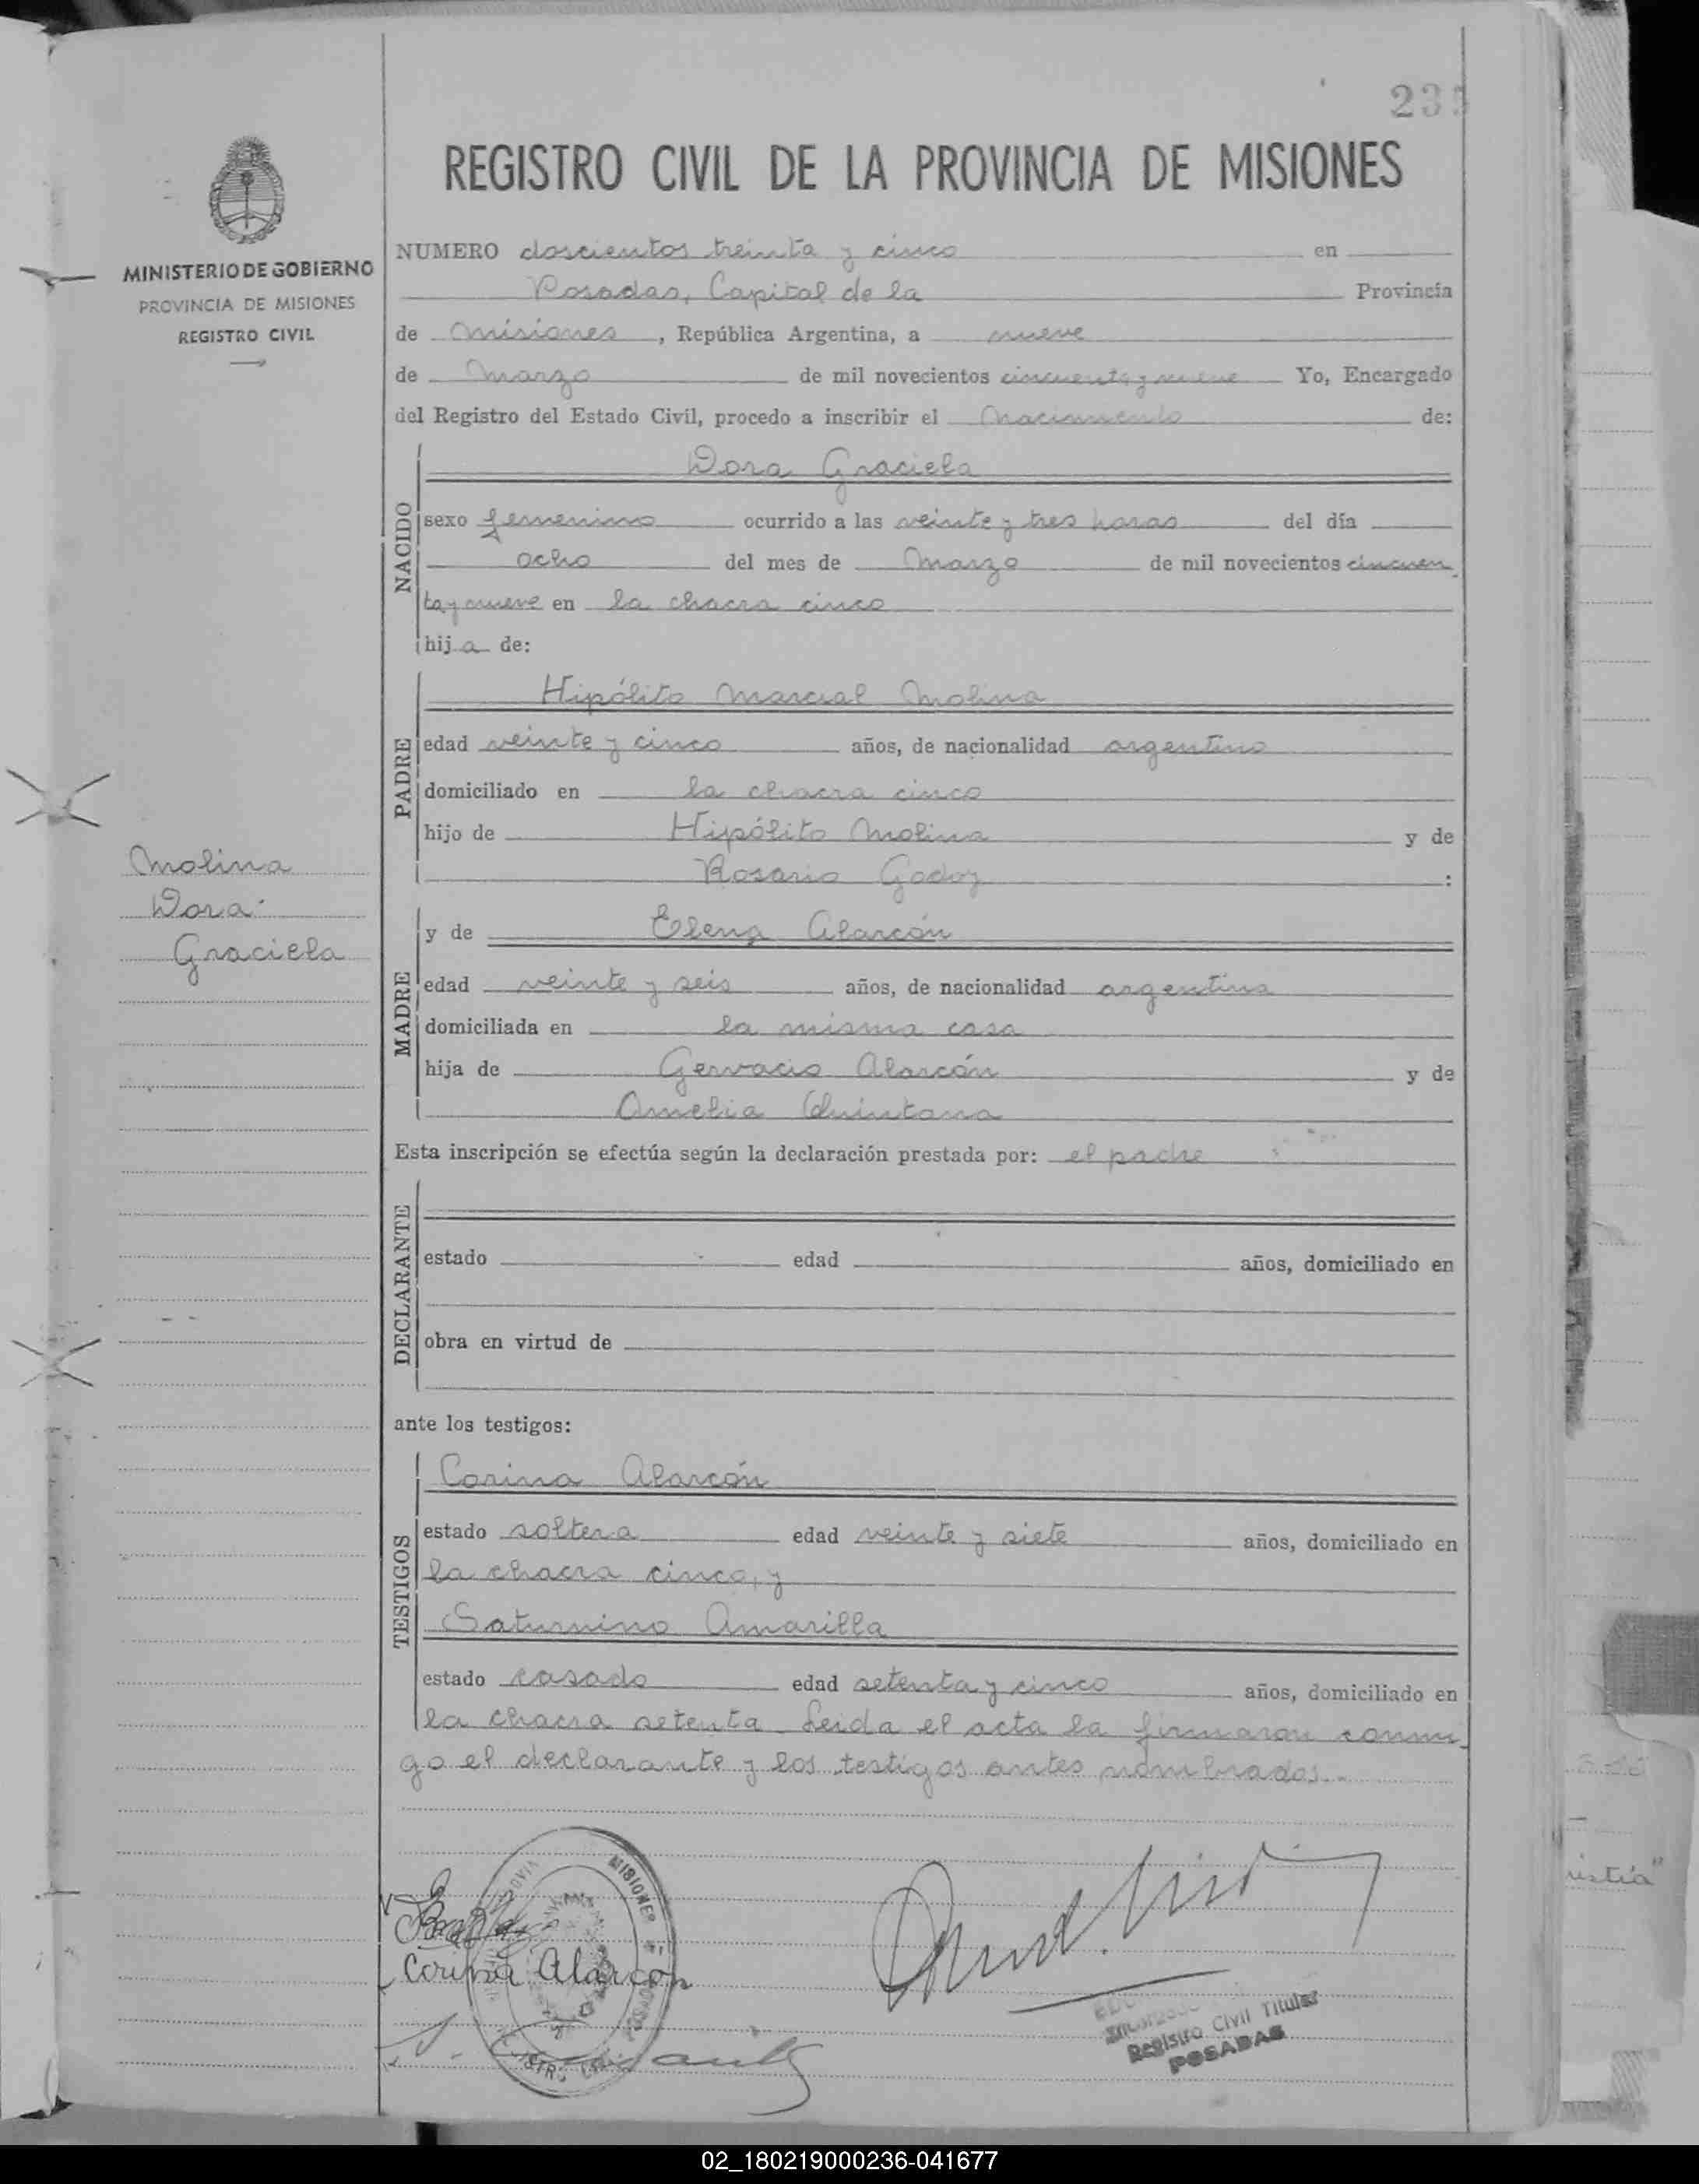 235
REGISTRO CIVIL DE LA PROVINCIA DE MISIONES
MINISTERIO DE GOBIERNO
PROVINCIA DE MISIONES
REGISTRO CIVIL
NUMERO doscientos treinta y cinco en
Posadas, Capital de la Provincia
de Misiones, República Argentina, a nueve
de Marzo de mil novecientos cincuenta y nueve Yo, Encargado
del Registro del Estado Civil, procedo a inscribir el Nacimiento de:
NACIDO
Dora Graciela
sexo femenino ocurrido a las veinte y tres horas del día
ocho del mes de Marzo de mil novecientos cincuen
ta y nueve en la chacra cinco
hija de:
PADRE
Hipólito Marcial Molina
edad veinte y cinco años, de nacionalidad argentino
domiciliado en la chacra cinco
hijo de Hipólito Molina y de
Rosario Godoy :
Molina
Dora
Graciela
MADRE
y de Elena Alarcón
edad veinte y seis años, de nacionalidad argentina
domiciliada en la misma casa
hija de Gervacio Alarcón y de
Amelia Quintana
Esta inscripción se efectúa según la declaración prestada por: el padre
DECLARANTE
estado edad años, domiciliado en
obra en virtud de
ante los testigos:
TESTIGOS
Corina Alarcón
estado soltera edad veinte y siete años, domiciliado en
la chacra cinco, y
Saturnino Amarilla
estado casado edad setenta y cinco años, domiciliado en
la chacra setenta. Leida el acta la firmaron conmi
go el declarante y los testigos antes nombrados.-
MISIONES
Corina Alarcón
Registro Civil Titular
POSADAS
02_180219000236-041677